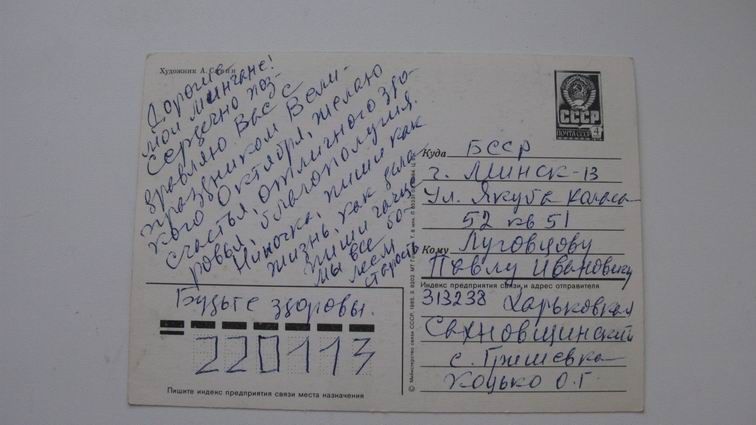 Художник А. Савин
Дорогие
мои минчане!
Сердечно поз-
дравляю Вас с
праздником Вели-
кого Октября, желаю
счастья, отличного здо-
ровья, благополучия.
Ниночка, пиши как
жизнь, как дела
пиши чаще
мы все бо-
леем
старость
Будьте здоровы.
220113
Пишите индекс предприятия связи места назначения
СССР
ПОЧТА СССР
4
Куда БССР
г. Минск-13
ул. Якуба Коласа
52 кв 51
Кому Луговцову
Павлу Ивановичу
Индекс предприятия связи и адрес отправителя
313238 Харьковская
Сахновщинский
с. Гришевка
Коцько О. Г.
© Министерство связи СССР, 1985.